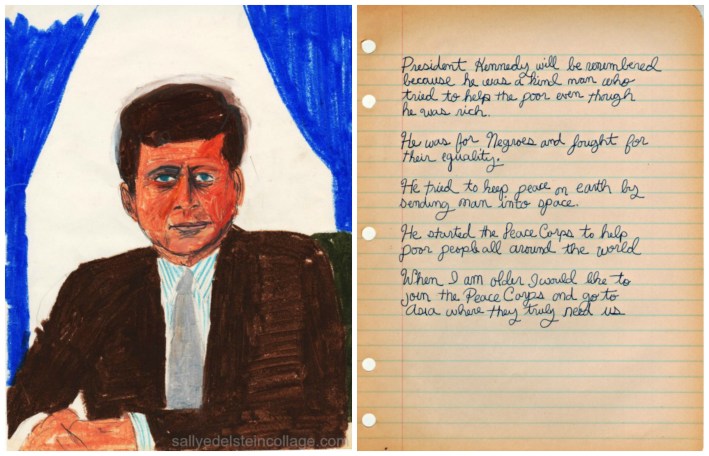 President Kennedy will be remembered
because he was a kind man who
tried to help the poor even though
he was rich.
He was for Negroes and fought for
their equality.
He tried to keep peace on earth by
sending man into space.
He started the Peace Corps to help
poor people all around the world
When I am older I would like to
join the Peace Corps and go to
Asia where they truly need us
sallyedelsteincollage.com